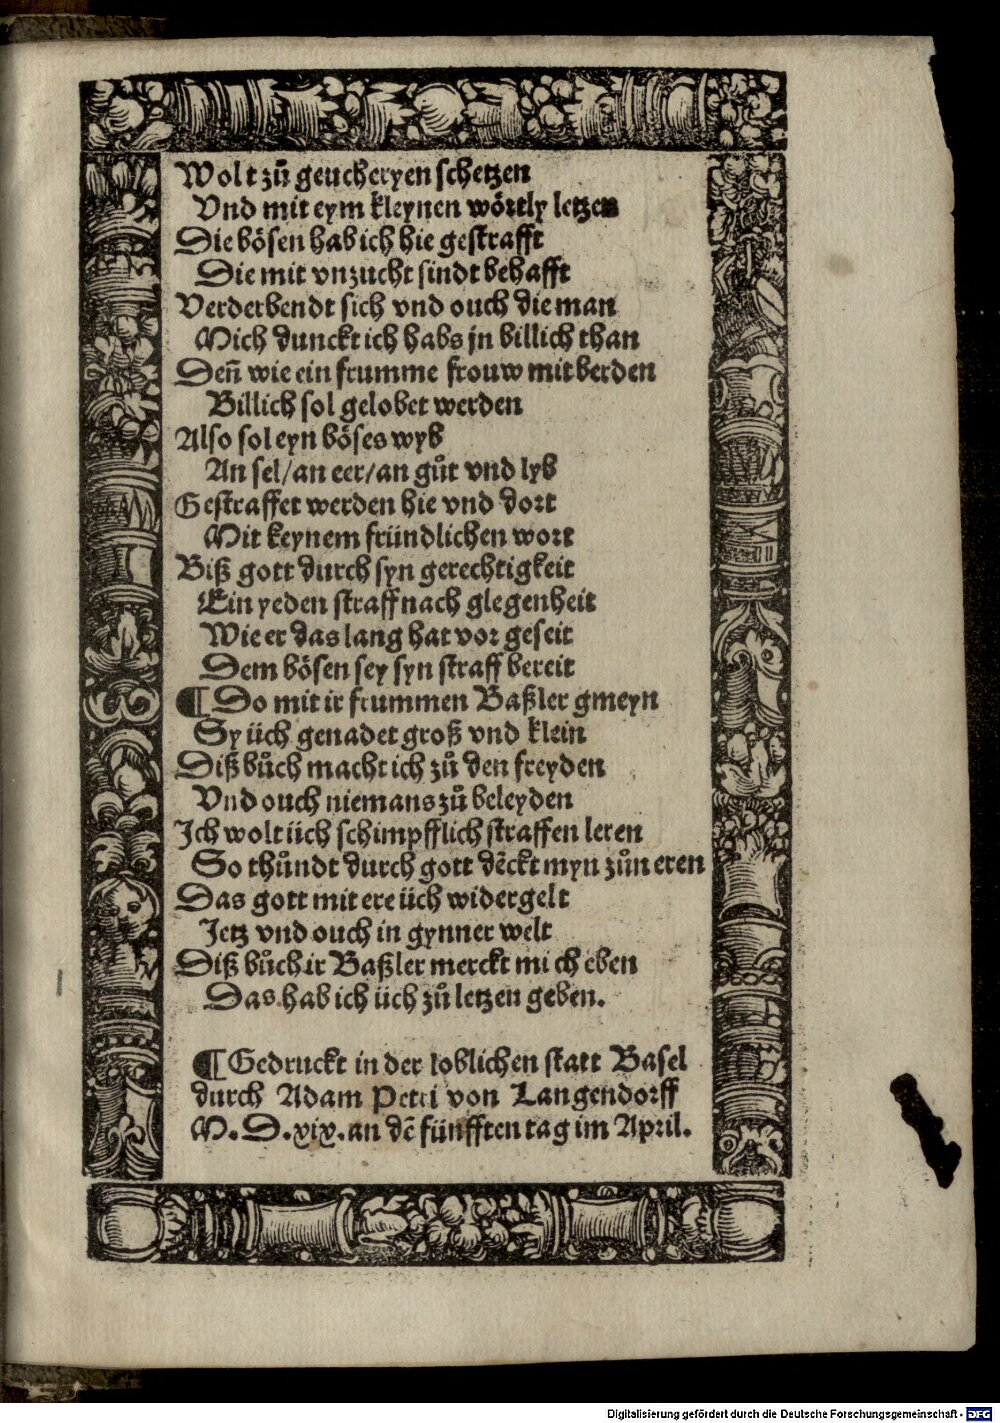 Wolt zů geucheryen schetzen
Vnd mit eym kleynen wörtly letzen
Die bösen hab ich hie gestrafft
Die mit vnzucht sindt behafft
Verderbendt sich vnd ouch die man
Mich dunckt ich habs jn billich than
Deñ wie ein frumme frouw mit berden
Billich sol gelobet werden
Also sol eyn böses wyb
An sel/an eer/an gůt vnd lyb
Gestraffet werden hie vnd dort
Mit keynem fründlichen wort
Biß gott durch syn gerechtigkeit
Ein yeden straff nach glegenheit
Wie er das lang hat vor geseit
Dem bösen sey syn straff bereit
¶ Do mit ir frummen Baßler gmeyn
Sy üch genadet groß vnd klein
Diß bůch macht ich zů den freyden
Vnd ouch niemans zů beleyden
Ich wolt üch schimpfflich straffen leren
So thůndt durch gott dēckt myn zůn eren
Das gott mit ere üch widergelt
Jetz vnd ouch in gynner welt
Diß bůch ir Baßler merckt mich eben
Das hab ich üch zů letzen geben.
¶ Gedruckt in der loblichen statt Basel
durch Adam Petri von Langendorff
M.D.xix. an dē fünfften tag im April.
Digitalisierung gefördert durch die Deutsche Forschungsgemeinschaft - DFG